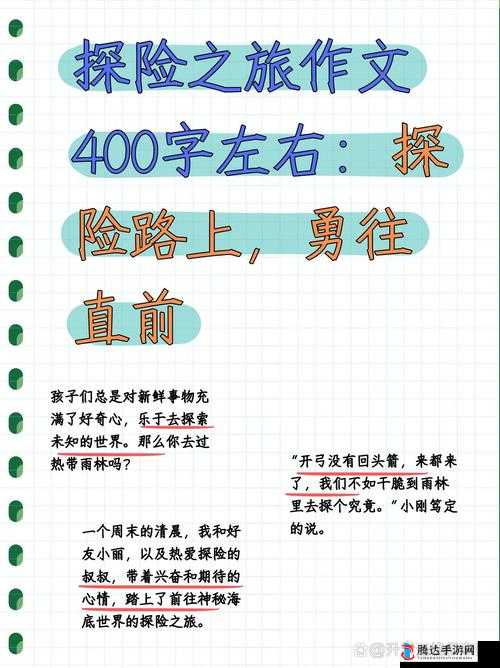 探险之旅作文
400字左右：探
险路上，勇往
直前
孩子们总是对新鲜事物充
满了好奇心，乐于去探索
未知的世界。那么你去过
热带雨林吗？
“开弓没有回头箭，来都来
了，我们不如干脆到雨林
里去探个究竟。”小刚笃定
的说。
一个周末的清晨，我和好
友小丽，以及热爱探险的
叔叔，带着兴奋和期待的
心情，踏上了前往神秘海
底世界的探险之旅。
腾达手游网